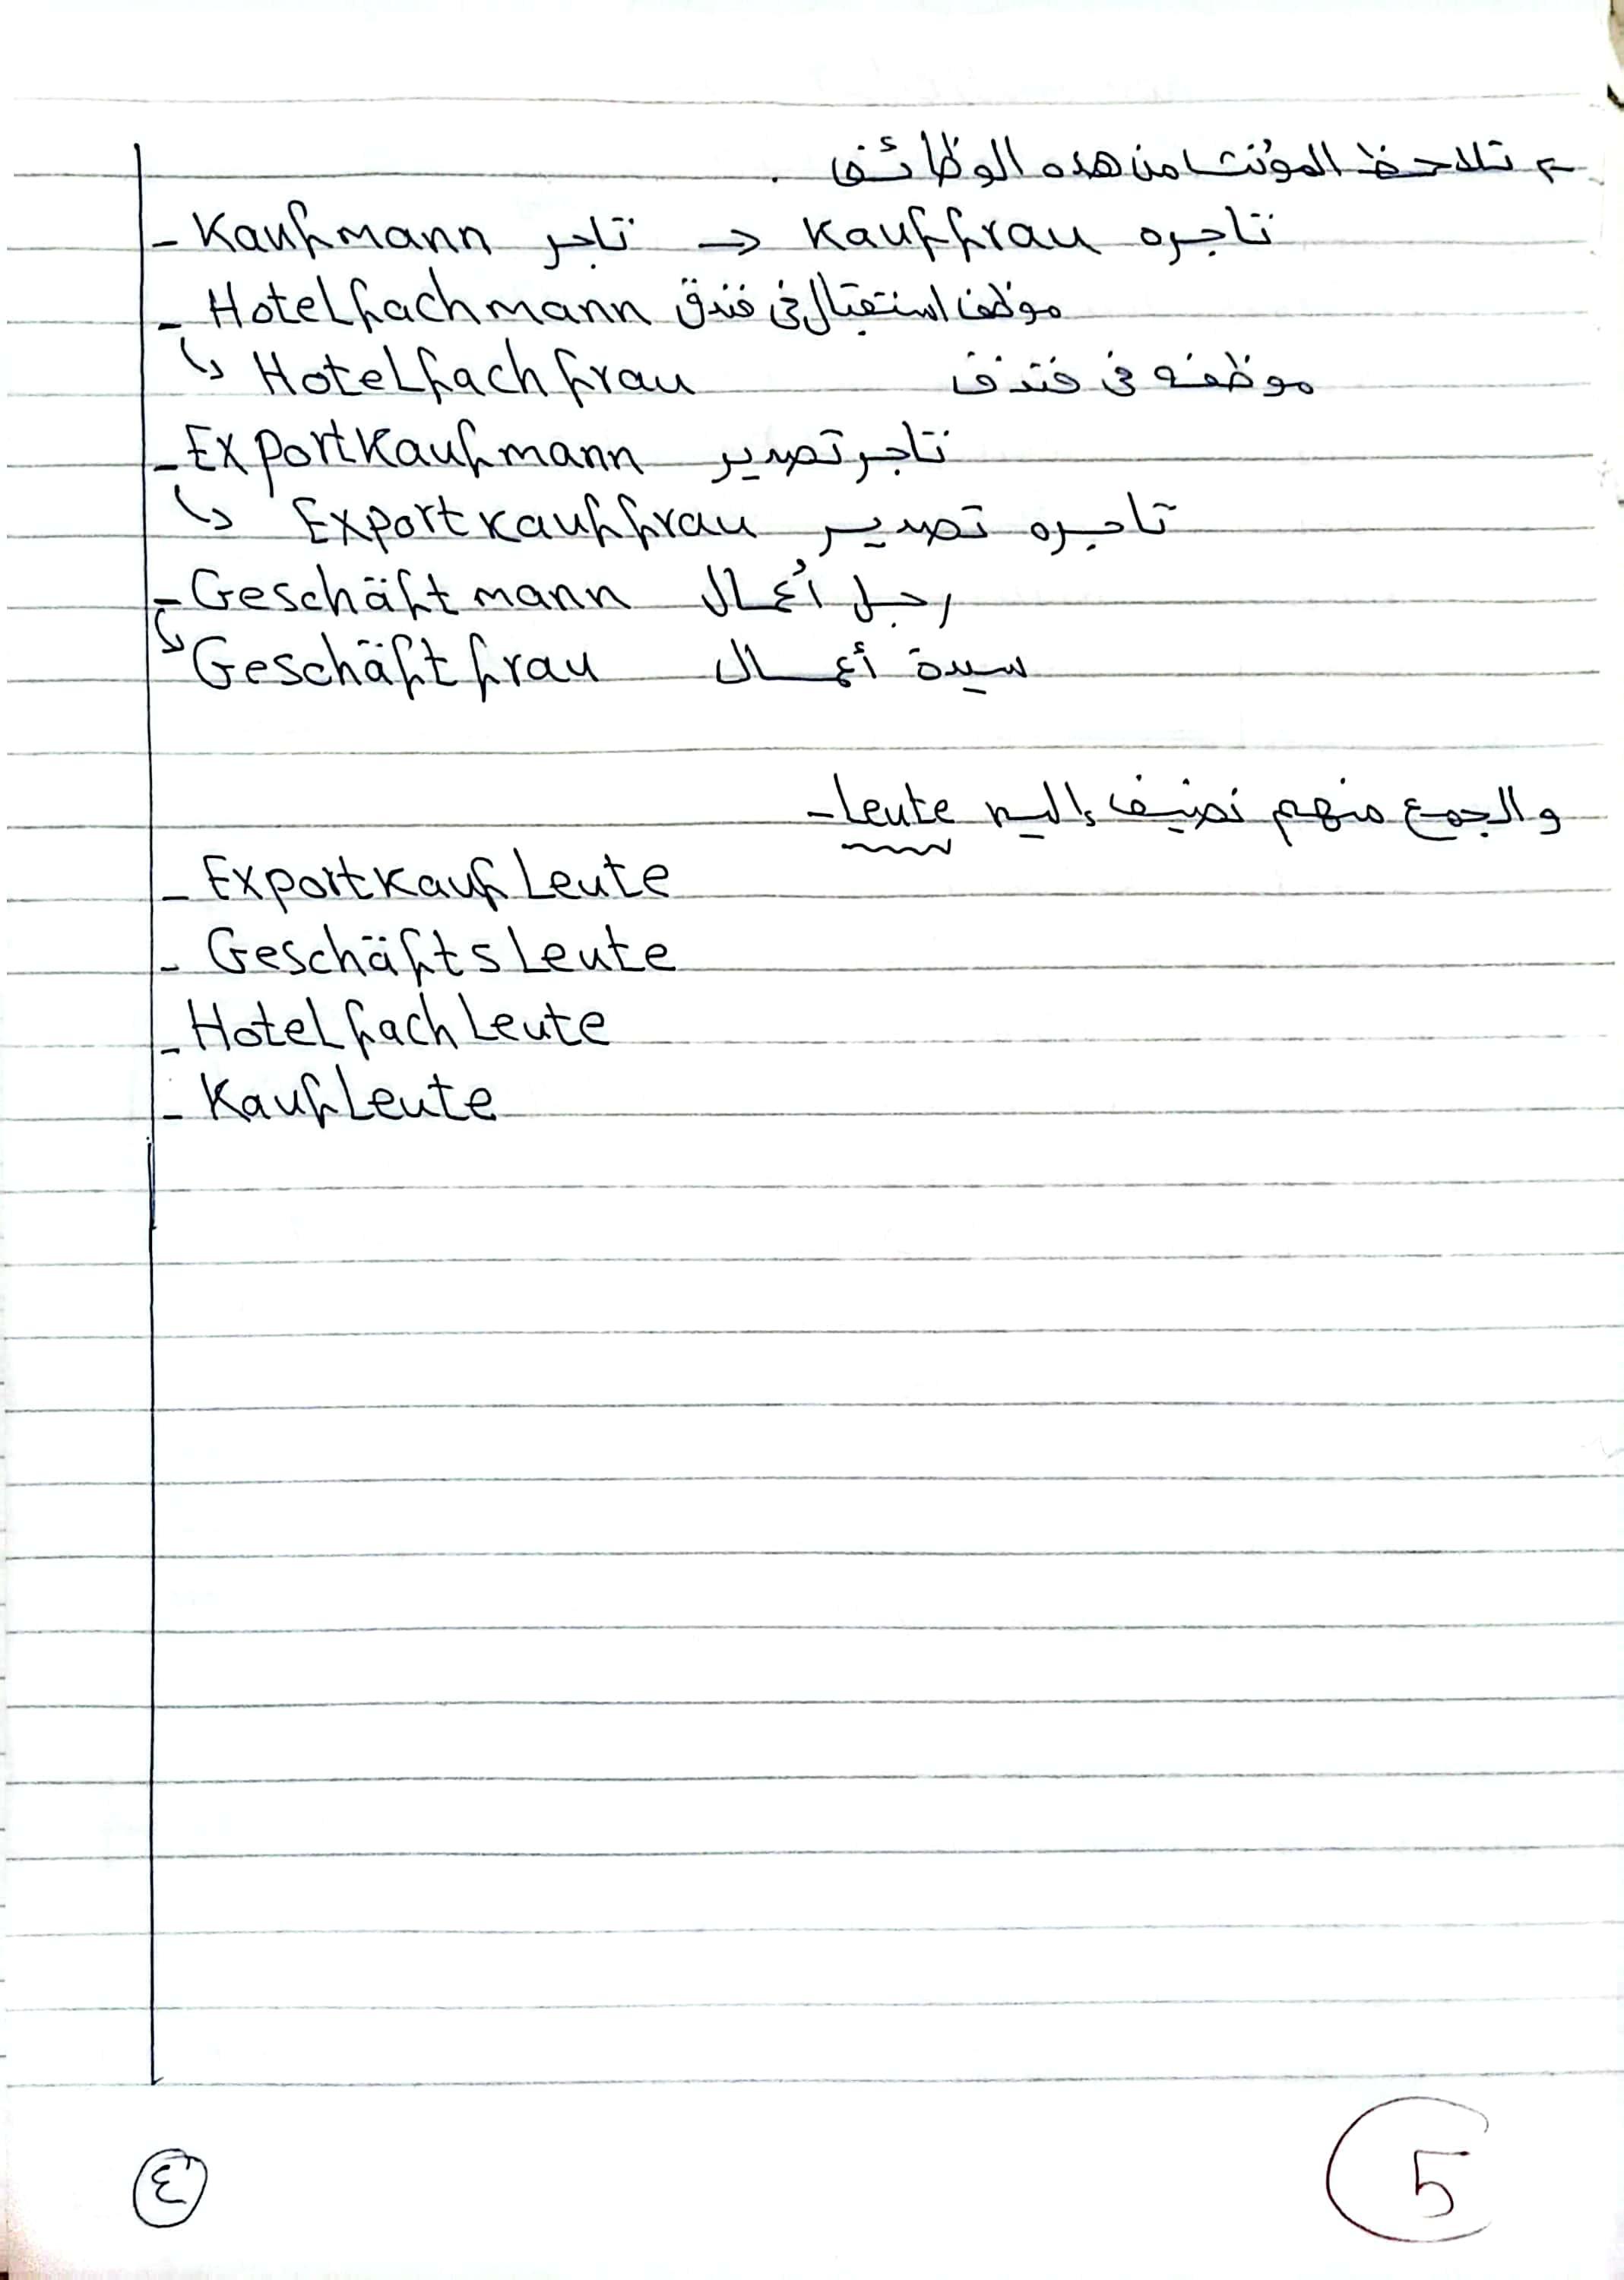 تلاحظ المؤنث من هذه الوظائف .
- Kaufmann تاجر → Kauffrau تاجره
- Hotelfachmann موظف استقبال فى فندق
↳ Hotelfachfrau موظفه فى فندق
- Exportkaufmann تاجر تصدير
↳ Exportkauffrau تاجره تصدير
- Geschäftmann رجل أعمال
↳ Geschäftfrau سيدة أعمال
والجمع منهم نضيف إليه leute-
- Exportkaufleute
- Geschäftsleute
- Hotelfachleute
- Kaufleute
٤
5